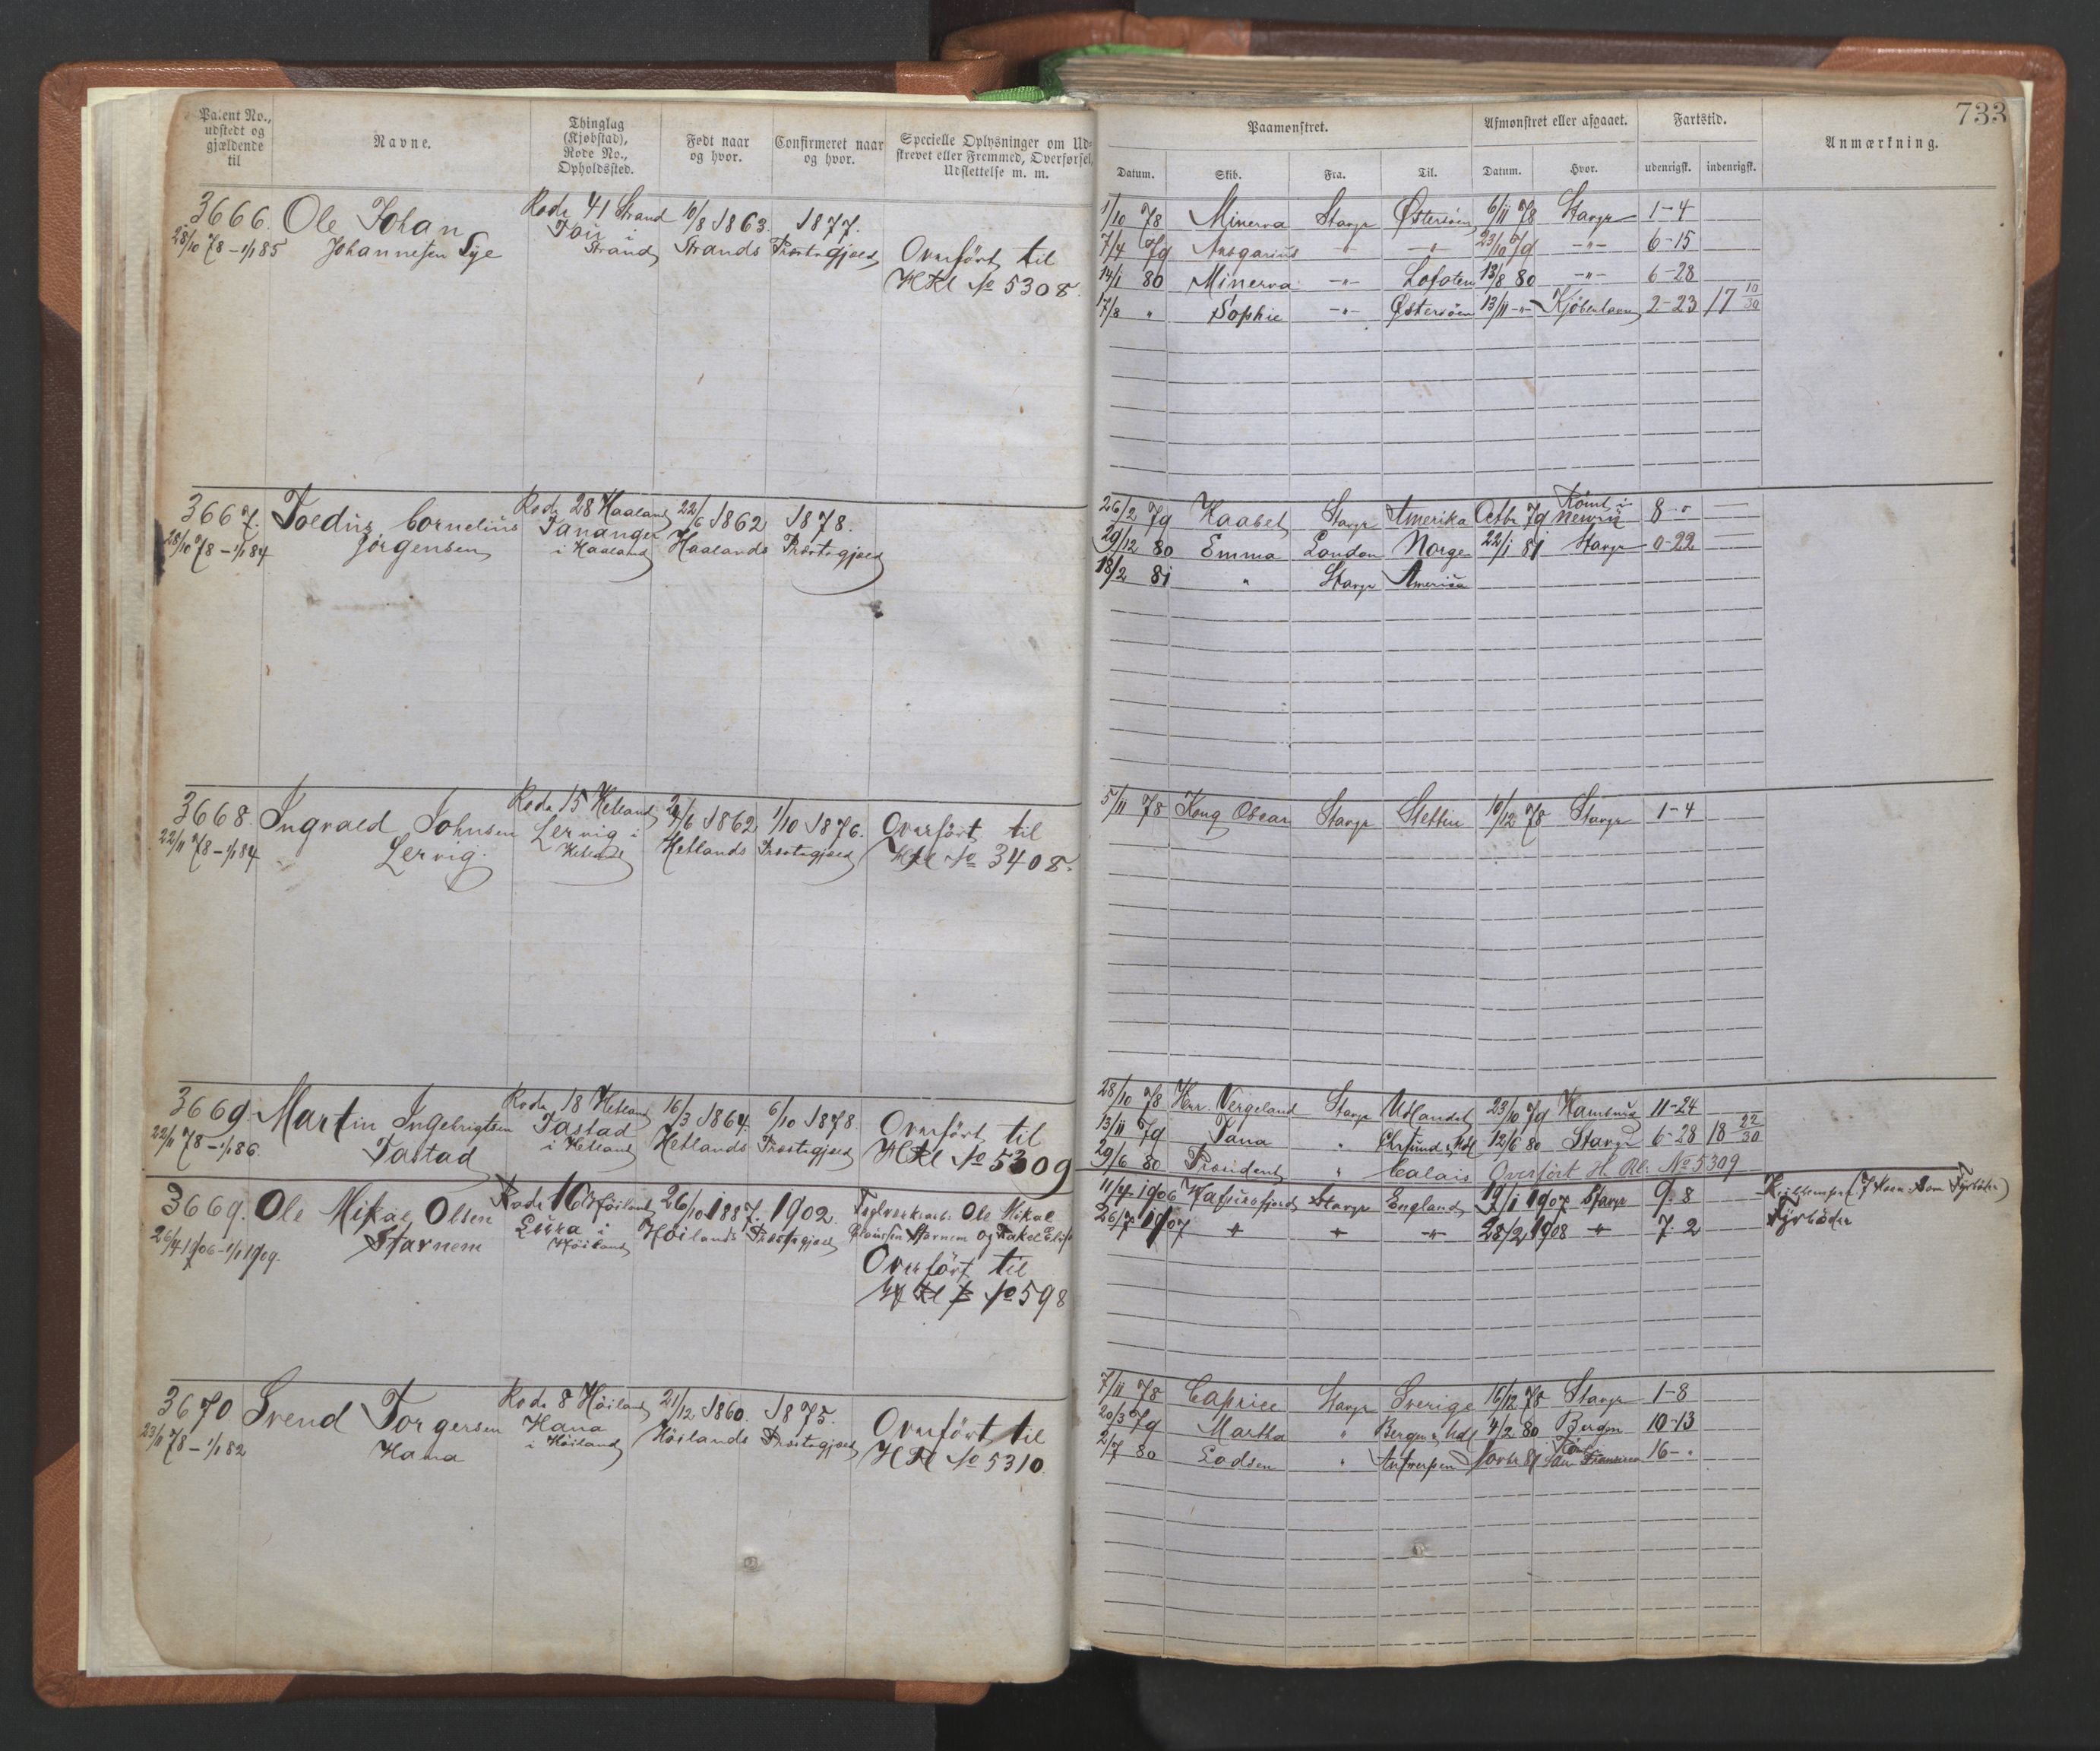 733
Patent No., udstedt og gjældende til
Navne.
Thinglag (Kjøbstad), Rode No., Opholdssted.
Født naar og hvor.
Confirmeret naar og hvor.
Specielle Oplysninger om Udskrevet eller Fremmed, Overførsel, Udslettelse m. m.
Paamønstret.
Afmønstret eller afgaaet.
Fartstid.
Anmærkning.
Datum. Skib. Fra. Til. Datum. Hvor. udenrigsk. indenrigsk.
3666. Ole Johan Rode 41 Strand 10/8 1863. 1877.
28/10 78 – 1/1 85 Johannesen Tye Tou i Strand Strands Præstegjæld Overført til
HRl No 5308.
1/10 78 Minerva Stavgr Østersøen 6/11 78 Stavgr 1-4
7/4 79 Ansgarius " " 23/10 79 -"- 6-15
14/1 80 Minerva -"- Lofoten 13/8 80 -"- 6-28
17/8 " Sophie -"- Østersøen 13/11 -"- Kjøbenhavn 2-23 17 10/30
3667. Cornelius Rode 28 Haaland 22/6 1862 1878.
28/10 78 – 1/1 84 Jørgensen Tananger i Haaland Haalands Præstegjæld
26/2 79 Kaabel Stavgr Amerika Octbr 79 Rømt i 8 "
29/12 80 Emma London Norge 22/1 81 Stavgr 0-22
18/2 81 " Stavgr America
3668. Ingvald Johnsen Rode 15 Hetland /6 1862 1/10 1876. Overført til
22/11 78 – 1/1 84 Lervig. Lervig i Hetland Hetlands Præstegjæld HRl No 3408.
5/11 78 Kong Oscar Stavgr Stettin 10/12 78 Stavgr 1-4
3669. Martin Ingebrigtsen Rode 18 Hetland 16/3 1864. 6/10 1878. Overført til
22/11 78 – 1/1 86. Tastad Tastad i Hetland Hetlands Præstegjæld HRl No 5309
28/10 78 Hen. Vergeland Stavgr Udlandet 23/10 79 Hamburg 11-24
13/11 79 Tana " Chrsund & Udl 12/6 80 Stavgr 6-28 18 22/30
29/6 80 President " Calais Overført H. Rl. No 5309
3669. Ole Mikal Olsen Rode 16 Høiland 26/10 1887. 1902. Ole Mikal
26/4 1906 – 1/1 1909. Starnem i Høiland Høilands Præstegjæld Starnem og Rakel
Overført til
HRl No 598
11/4 1906 Hafursfjord Stavgr England 19/1 1907 Stavgr 9. 8
26/7 1907 " " -"- 28/2 1908 " 7. 2 Fyrbøder
3670. Svend Torgersen Rode 8 Høiland 21/12 1860. 1875. Overført til
23/11 78 – 1/1 82 Hana Hana i Høiland Høilands Præstegjæld HRl No 5310.
7/11 78 Caprice Stavgr Sverige 16/12 78 Stavgr 1-8
20/3 79 Martha " Bergen & Udl 4/2 80 Bergen 10-13
2/7 80 " Antwerpen 81 San Francisco 16-"